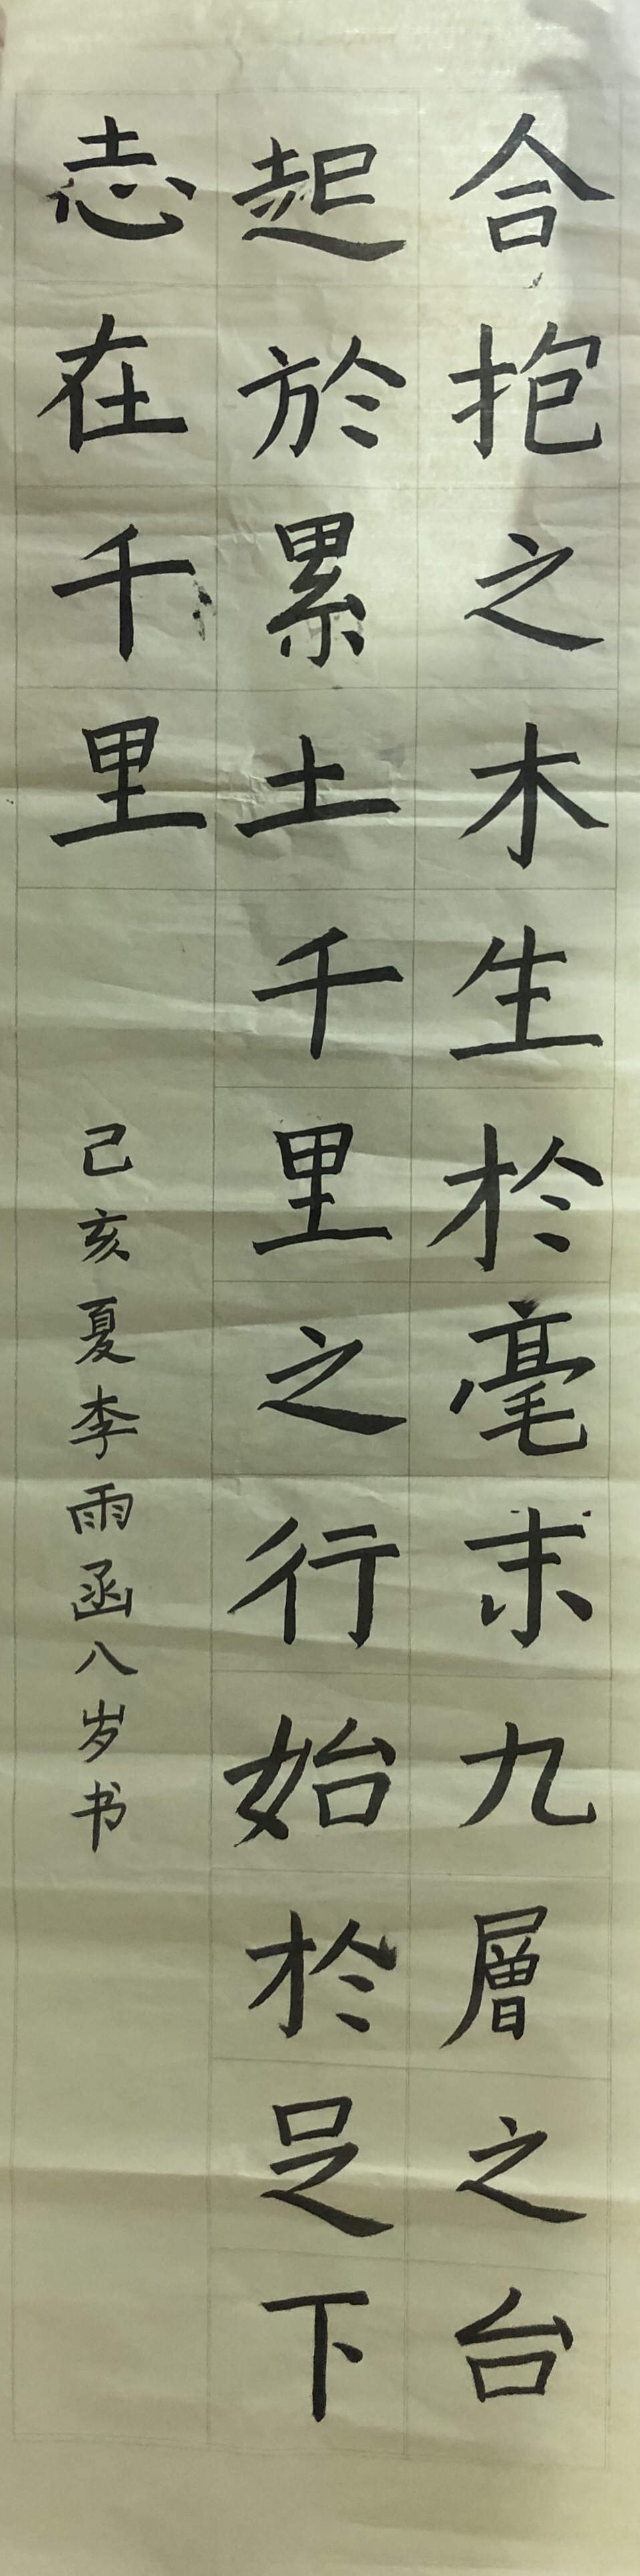 合抱之木生於毫末九層之台
起於累土千里之行始於足下
志在千里
己亥夏李雨函八岁书